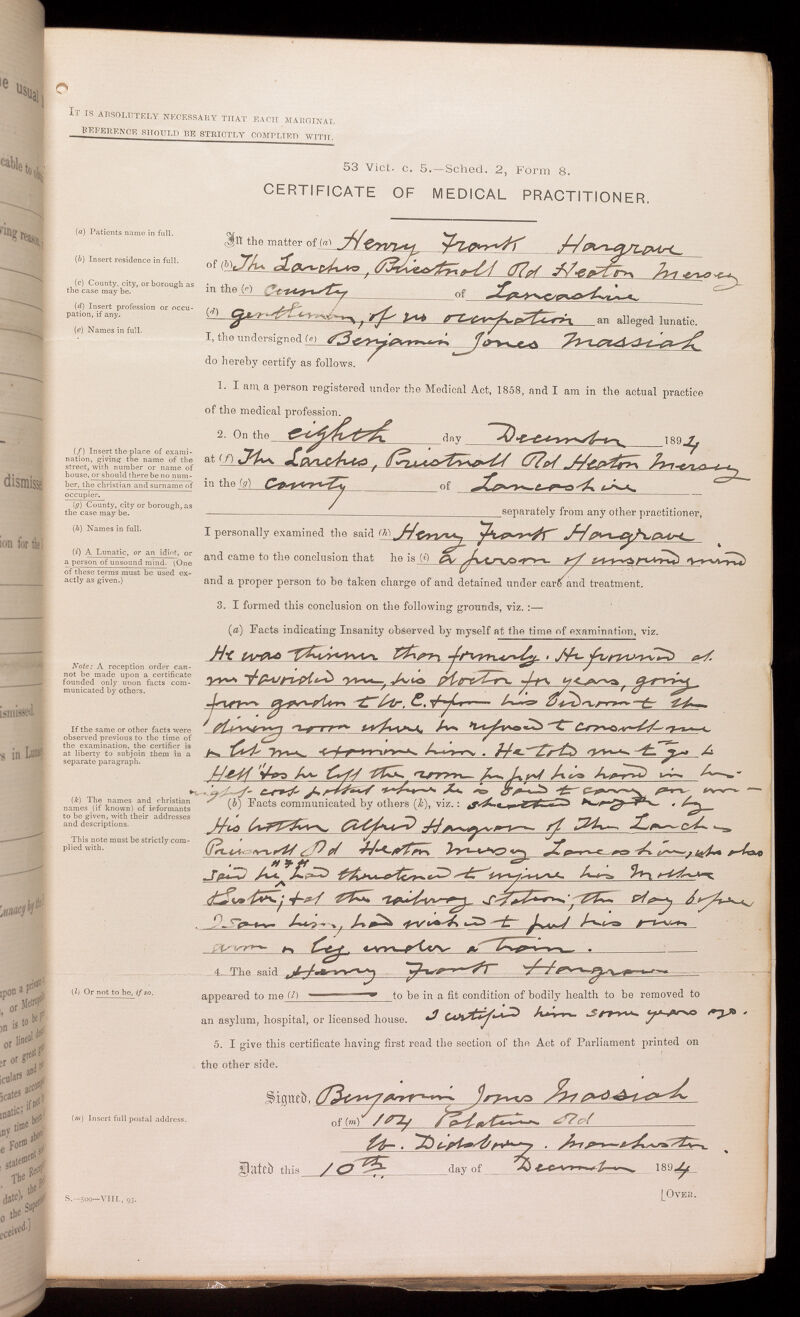 IT IS ABSOLUTELY NECESSARY THAT EACH MARGINAL
REFERENCE SHOULD BE STRICTLY COMPLIED WITH.
53 Vict. c. 5.—Sched. 2, Form 8.
CERTIFICATE OF MEDICAL PRACTITIONER.
(a) Patients name in full.
(b) Insert residence in full.
(c) County, city, or borough as
the case may be.
(d) Insert profession or occu-
pation, if any.
(e) Names in full.
In the matter of (a) Henry Frank Hargrave
of (b) The Larches, Priestnall Rd Heaton Mersey
in the (c) County of Lancashire
(d) gentleman, of no occupation an alleged lunatic.
I, the undersigned (e) Benjamin Jones Massiah
do hereby certify as follows.
1. I am a person registered under the Medical Act, 1858, and I am in the actual practice
of the medical profession.
2. On the eighth day December 1894
(f) Insert the place of exami-
nation, giving the name of the
street, with number or name of
house, or should there be no num-
ber, the christian and surname of
occupier.
(g) County, city or borough, as
the case may be.
(h) Names in full.
(i) A Lunatic, or an idiot, or
a person of unsound mind. (One
of these terms must be used ex-
actly as given.)
at (f) The Larches, Priestnall Rd Heaton Mersey
in the (g) County of Lancashire
separately from any other practitioner,
I personally examined the said (h) Henry Frank Hargrave
and came to the conclusion that he is (i) a person of unsound mind
and a proper person to be taken charge of and detained under care and treatment.
3. I formed this conclusion on the following grounds, viz. :—
(a) Facts indicating Insanity observed by myself at the time of examination, viz.
Note: A reception order can-
not be made upon a certificate
founded only upon facts com-
municated by others.
If the same or other facts were
observed previous to the time of
the examination, the certifier is
at liberty to subjoin them in a
separate paragraph.
He was thinner than formerly. He frowned at
me & avoided me, his doctor for years, going
from garden to W.C. & from his bedroom to the
dining room where he refused to consult me
or let me examine him. He told me to "go to
Hell" & as he left the room he put his hand in his
right coat pocket where he is said to carry an un-
sheathed . by
(k) The names and christian
names (if known) of informants
to be given, with their addresses
and descriptions.
This note must be strictly com-
plied with.
(b) Facts communicated by others (k), viz. :
His brother Alfred Hargrave of The Larches
Priestnall Rd Heaton Mersey Lancashire, who also
said he had threatened to injure his Mother
& Sister; & at the railway station, the day before
I saw him, had wished to put his own
arm or leg under a train.
4. The said Henry Frank Hargrave
(l) Or not to be, if so.
appeared to me (l) to be in a fit condition of bodily health to be removed to
an asylum, hospital, or licensed house. I certified him some years ago.
5. I give this certificate having first read the section of the Act of Parliament printed on
the other side.
Signed, Benjamin Jones Massiah
(m) Insert full postal address.
of (m) 104 Palatine Rd
W. Didsbury. Manchester.
Dated this 10th day of December 1894
S.—500—VIII., 93.
[OVER.